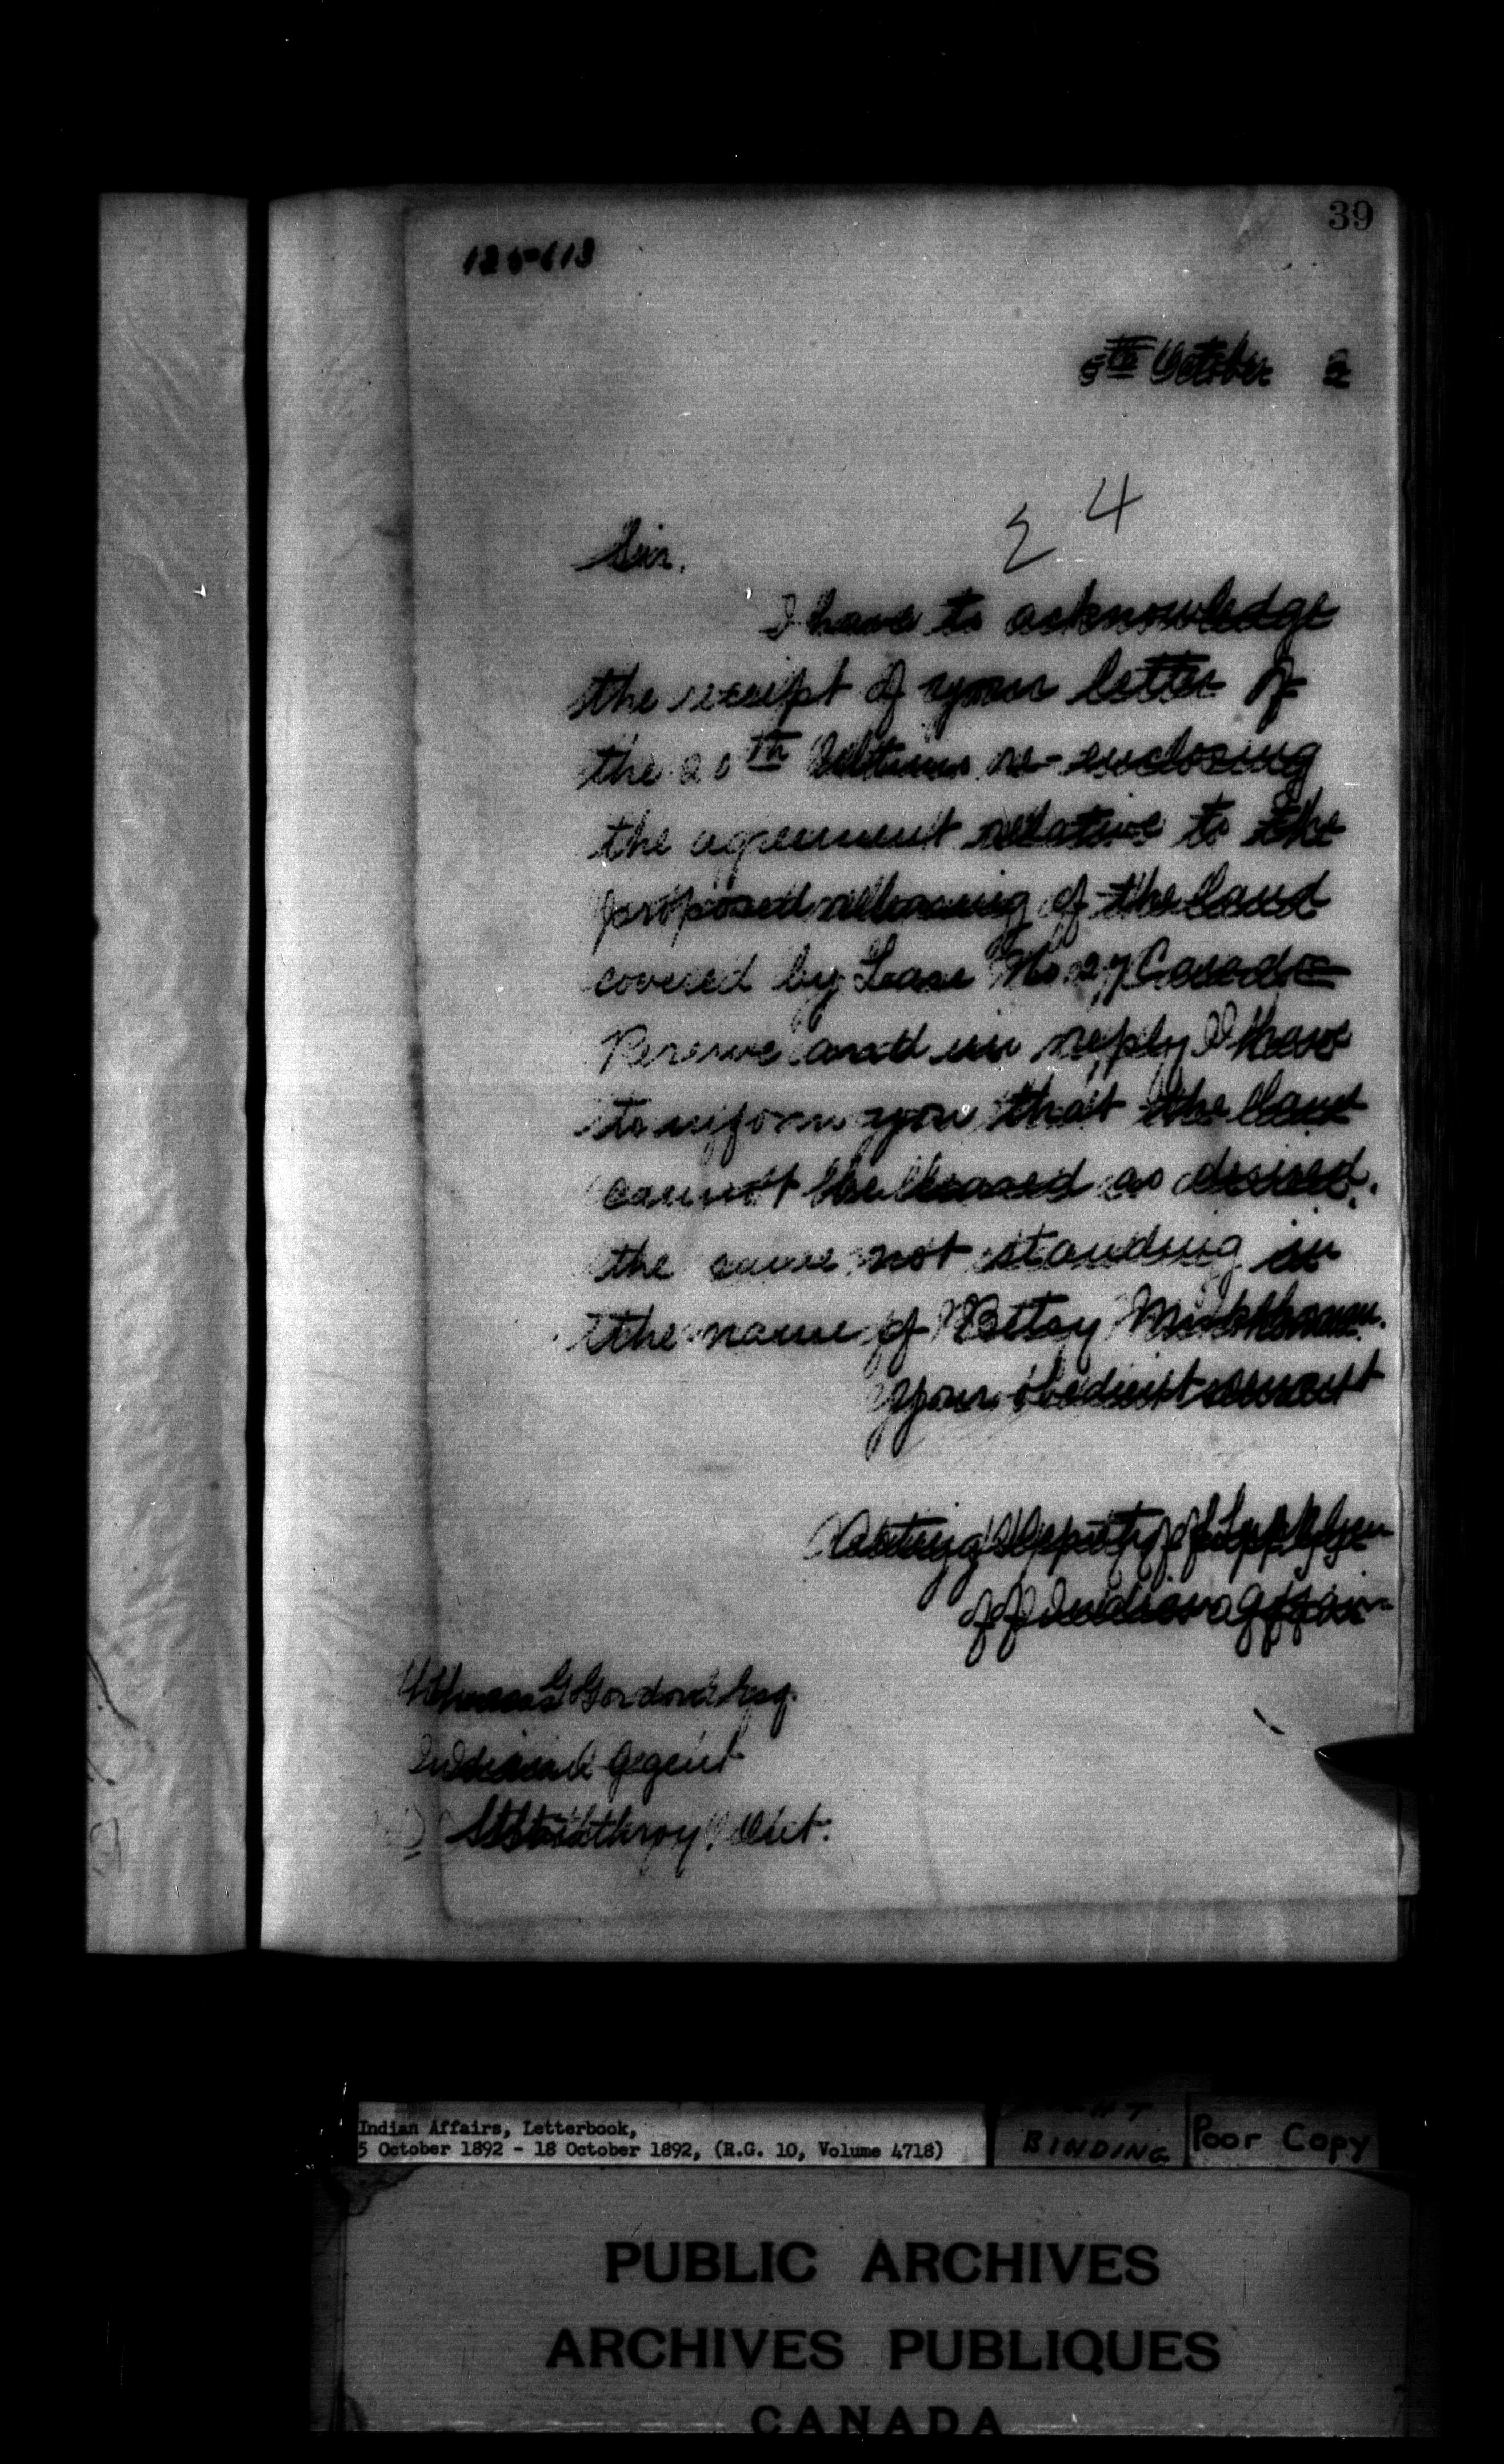 39
125-113
5th October 2
2 4
Sir.
I have to acknowledge
the receipt of your letter of
the 20th Ultimo re-enclosing
the agreement relative to the
proposed releasing of the land
covered by Lease No. 27 Caradoc
Reserve and in reply I have
to inform you that the land
cannot be leased as desired.
the same not standing in
the name of Betsy
Your obedient servant
Acting Deputy of Supt Gen
of Indian Affairs
Thomas Gordon Esq.
Indian Agent
Strathroy, Ont.
Indian Affairs, Letterbook,
5 October 1892 - 18 October 1892, (R.G. 10, Volume 4718)
BINDING
Poor Copy
PUBLIC ARCHIVES
ARCHIVES PUBLIQUES
CANADA